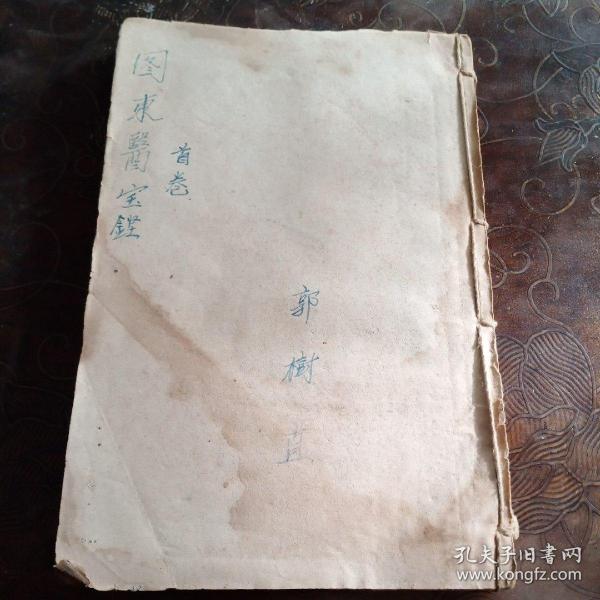 图东醫宝鑑
首卷
郭樹直
孔夫子旧書网
www.kongfz.com